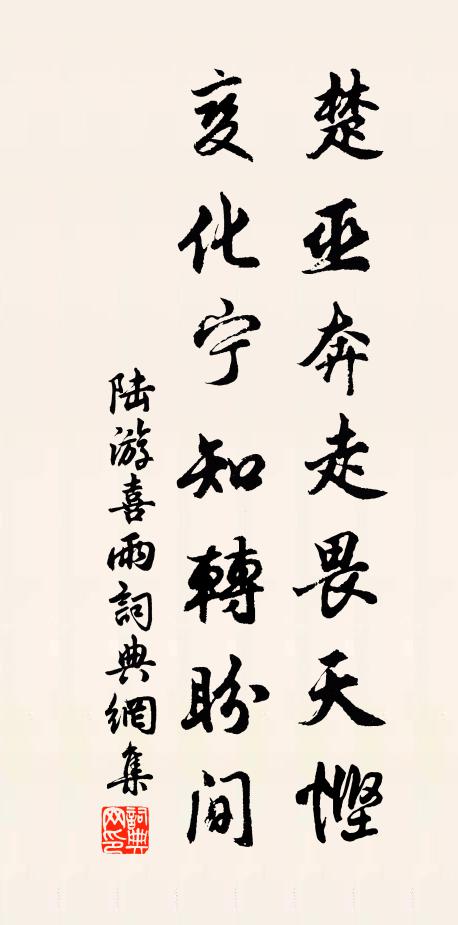 楚巫奔走畏天慳
变化宁知轉盼间
陆游喜雨詞典網集
詞典网印